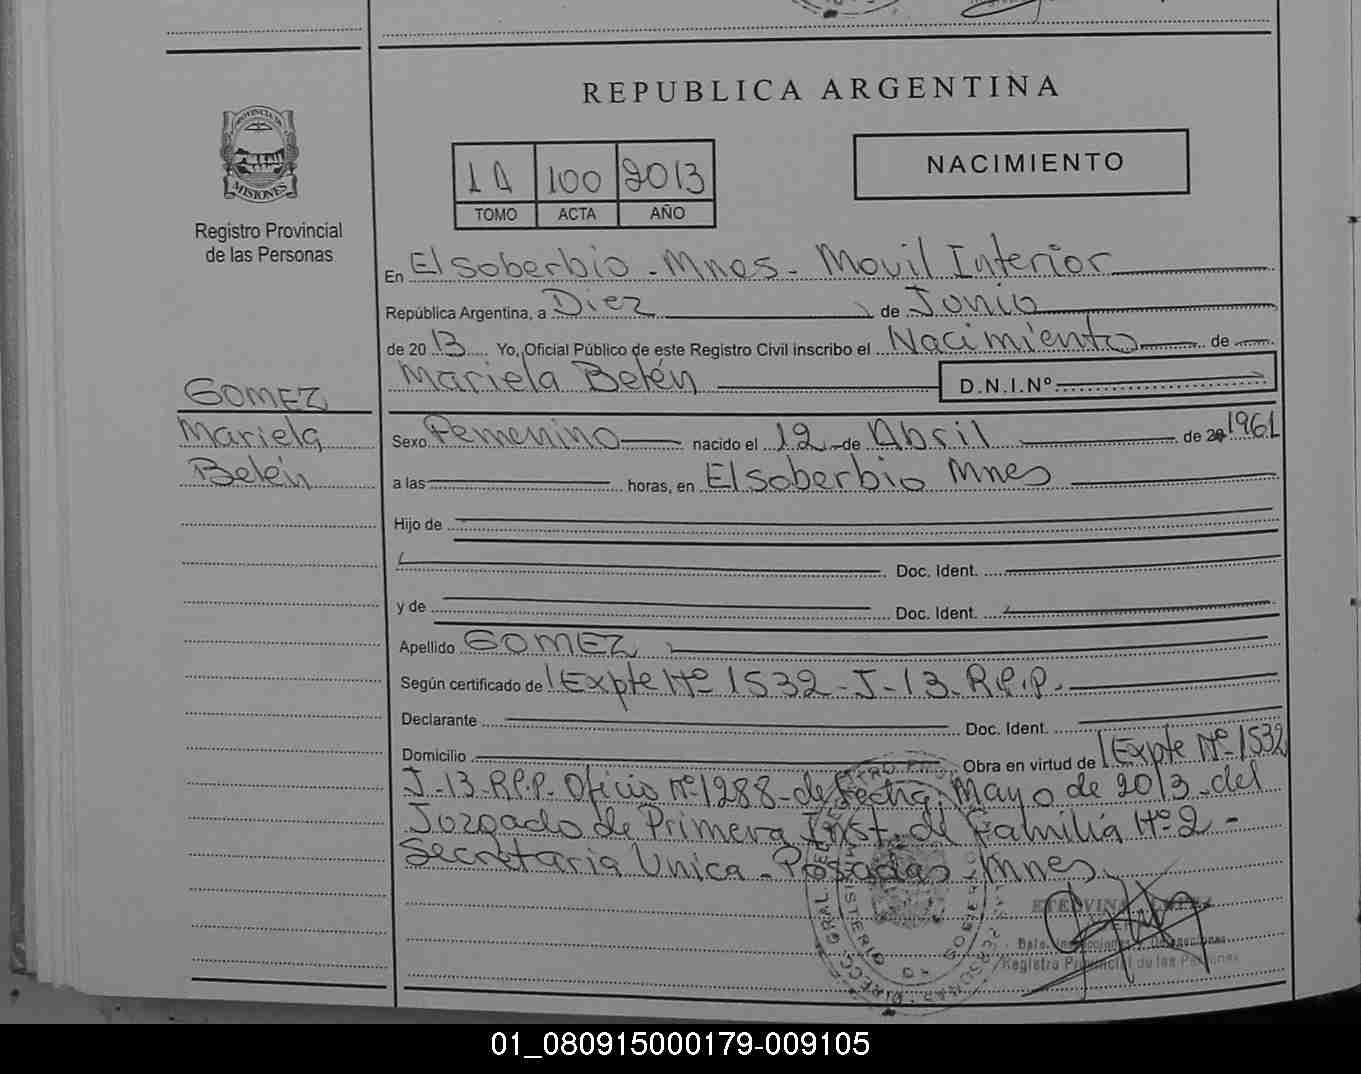 REPUBLICA ARGENTINA
PROVINCIA DE
MISIONES
Registro Provincial
de las Personas
1A 100 2013
TOMO ACTA AÑO
NACIMIENTO
En Elsoberbio - Mnes - Movil Interior
República Argentina, a Diez de Junio
de 20 13 Yo, Oficial Público de este Registro Civil inscribo el Nacimiento de
Mariela Belén D.N.I.Nº
GOMEZ
Mariela
Belén
Sexo Femenino nacido el 12 de Abril de 20 1961
a las horas, en Elsoberbio Mnes
Hijo de
Doc. Ident.
y de Doc. Ident.
Apellido GOMEZ
Según certificado de Expte Nº 1532-J-13-R.P.P.
Declarante Doc. Ident.
Domicilio Obra en virtud de Expte Nº 1532
J-13-R.P.P. Oficio nº 1288-de fecha, Mayo de 2013-del
Juzgado de Primera Inst. de Familia Nº 2 -
Secretaria Unica - Posadas - Mnes.
ETELVINA
Registro Provincial de las Personas
01_080915000179-009105